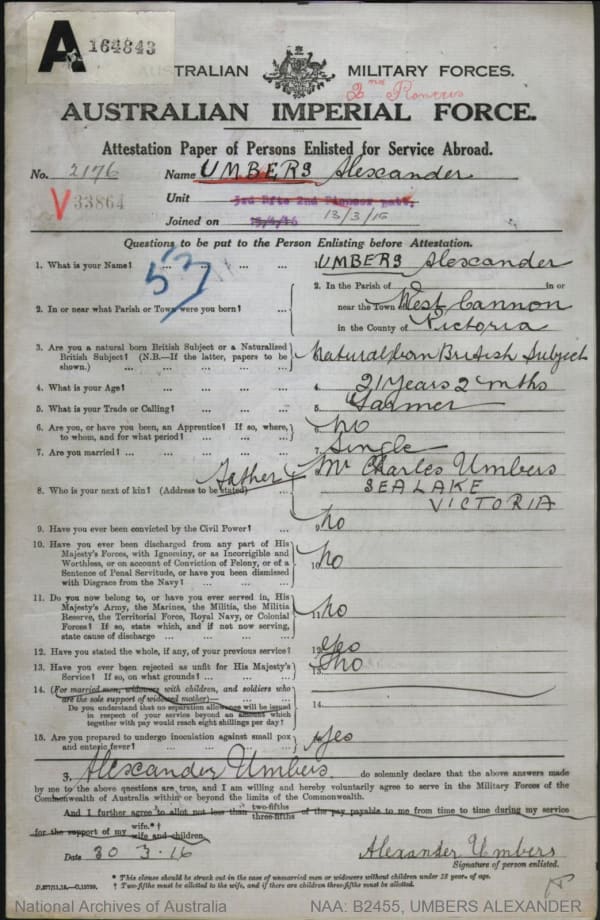 A 164843
TRALIAN MILITARY FORCES.
2nd Pioneers
AUSTRALIAN IMPERIAL FORCE.
Attestation Paper of Persons Enlisted for Service Abroad.
No. 2176 Name UMBERS Alexander
V 33864 Unit 3rd Rfts 2nd Pioneer Batt,
Joined on 13/3/16
Questions to be put to the Person Enlisting before Attestation.
53
1. What is your Name? ... ... ... ... 1. UMBERS Alexander
2. In or near what Parish or Town were you born? ... 2. In the Parish of in or
near the Town of West Cannon
in the County of Victoria
3. Are you a natural born British Subject or a Naturalized Natural born British Subject
British Subject? (N.B.—If the latter, papers to be
shown.) ... ... ... ... ...
4. What is your Age? ... ... ... ... 4. 21 Years 2 mths
5. What is your Trade or Calling? ... ... ... 5. Farmer
6. Are you, or have you been, an Apprentice? If so, where, 6. No
to whom, and for what period? ... ... ...
7. Are you married? ... ... ... ... ... 7. Single
Father Mr Charles Umbers
8. Who is your next of kin? (Address to be stated) ... SEA LAKE
VICTORIA
9. Have you ever been convicted by the Civil Power? ... 9. No
10. Have you ever been discharged from any part of His
Majesty's Forces, with Ignominy, or as Incorrigible and
Worthless, or on account of Conviction of Felony, or of a 10. No
Sentence of Penal Servitude, or have you been dismissed
with Disgrace from the Navy? ... ... ...
11. Do you now belong to, or have you ever served in, His
Majesty's Army, the Marines, the Militia, the Militia
Reserve, the Territorial Force, Royal Navy, or Colonial 11. No
Forces? If so, state which, and if not now serving,
state cause of discharge ... ... ... ...
12. Have you stated the whole, if any, of your previous service? 12. Yes
13. Have you ever been rejected as unfit for His Majesty's 13. No
Service? If so, on what grounds? ... ... ...
14. (For married men, widowers with children, and soldiers who
are the sole support of widowed mother)—
Do you understand that no separation allowance will be issued 14.
in respect of your service beyond an amount which
together with pay would reach eight shillings per day?
15. Are you prepared to undergo inoculation against small pox 15. Yes
and enteric fever? ... ... ... ...
I, Alexander Umbers do solemnly declare that the above answers made
by me to the above questions are true, and I am willing and hereby voluntarily agree to serve in the Military Forces of the
Commonwealth of Australia within or beyond the limits of the Commonwealth.
And I further agree to allot not less than two-fifths three-fifths of the pay payable to me from time to time during my service
for the support of my wife.*† wife and children.
Date 30 3.16 Alexander Umbers
Signature of person enlisted.
* This clause should be struck out in the case of unmarried men or widowers without children under 18 years of age.
† Two-fifths must be allotted to the wife, and if there are children three-fifths must be allotted.
National Archives of Australia NAA: B2455, UMBERS ALEXANDER